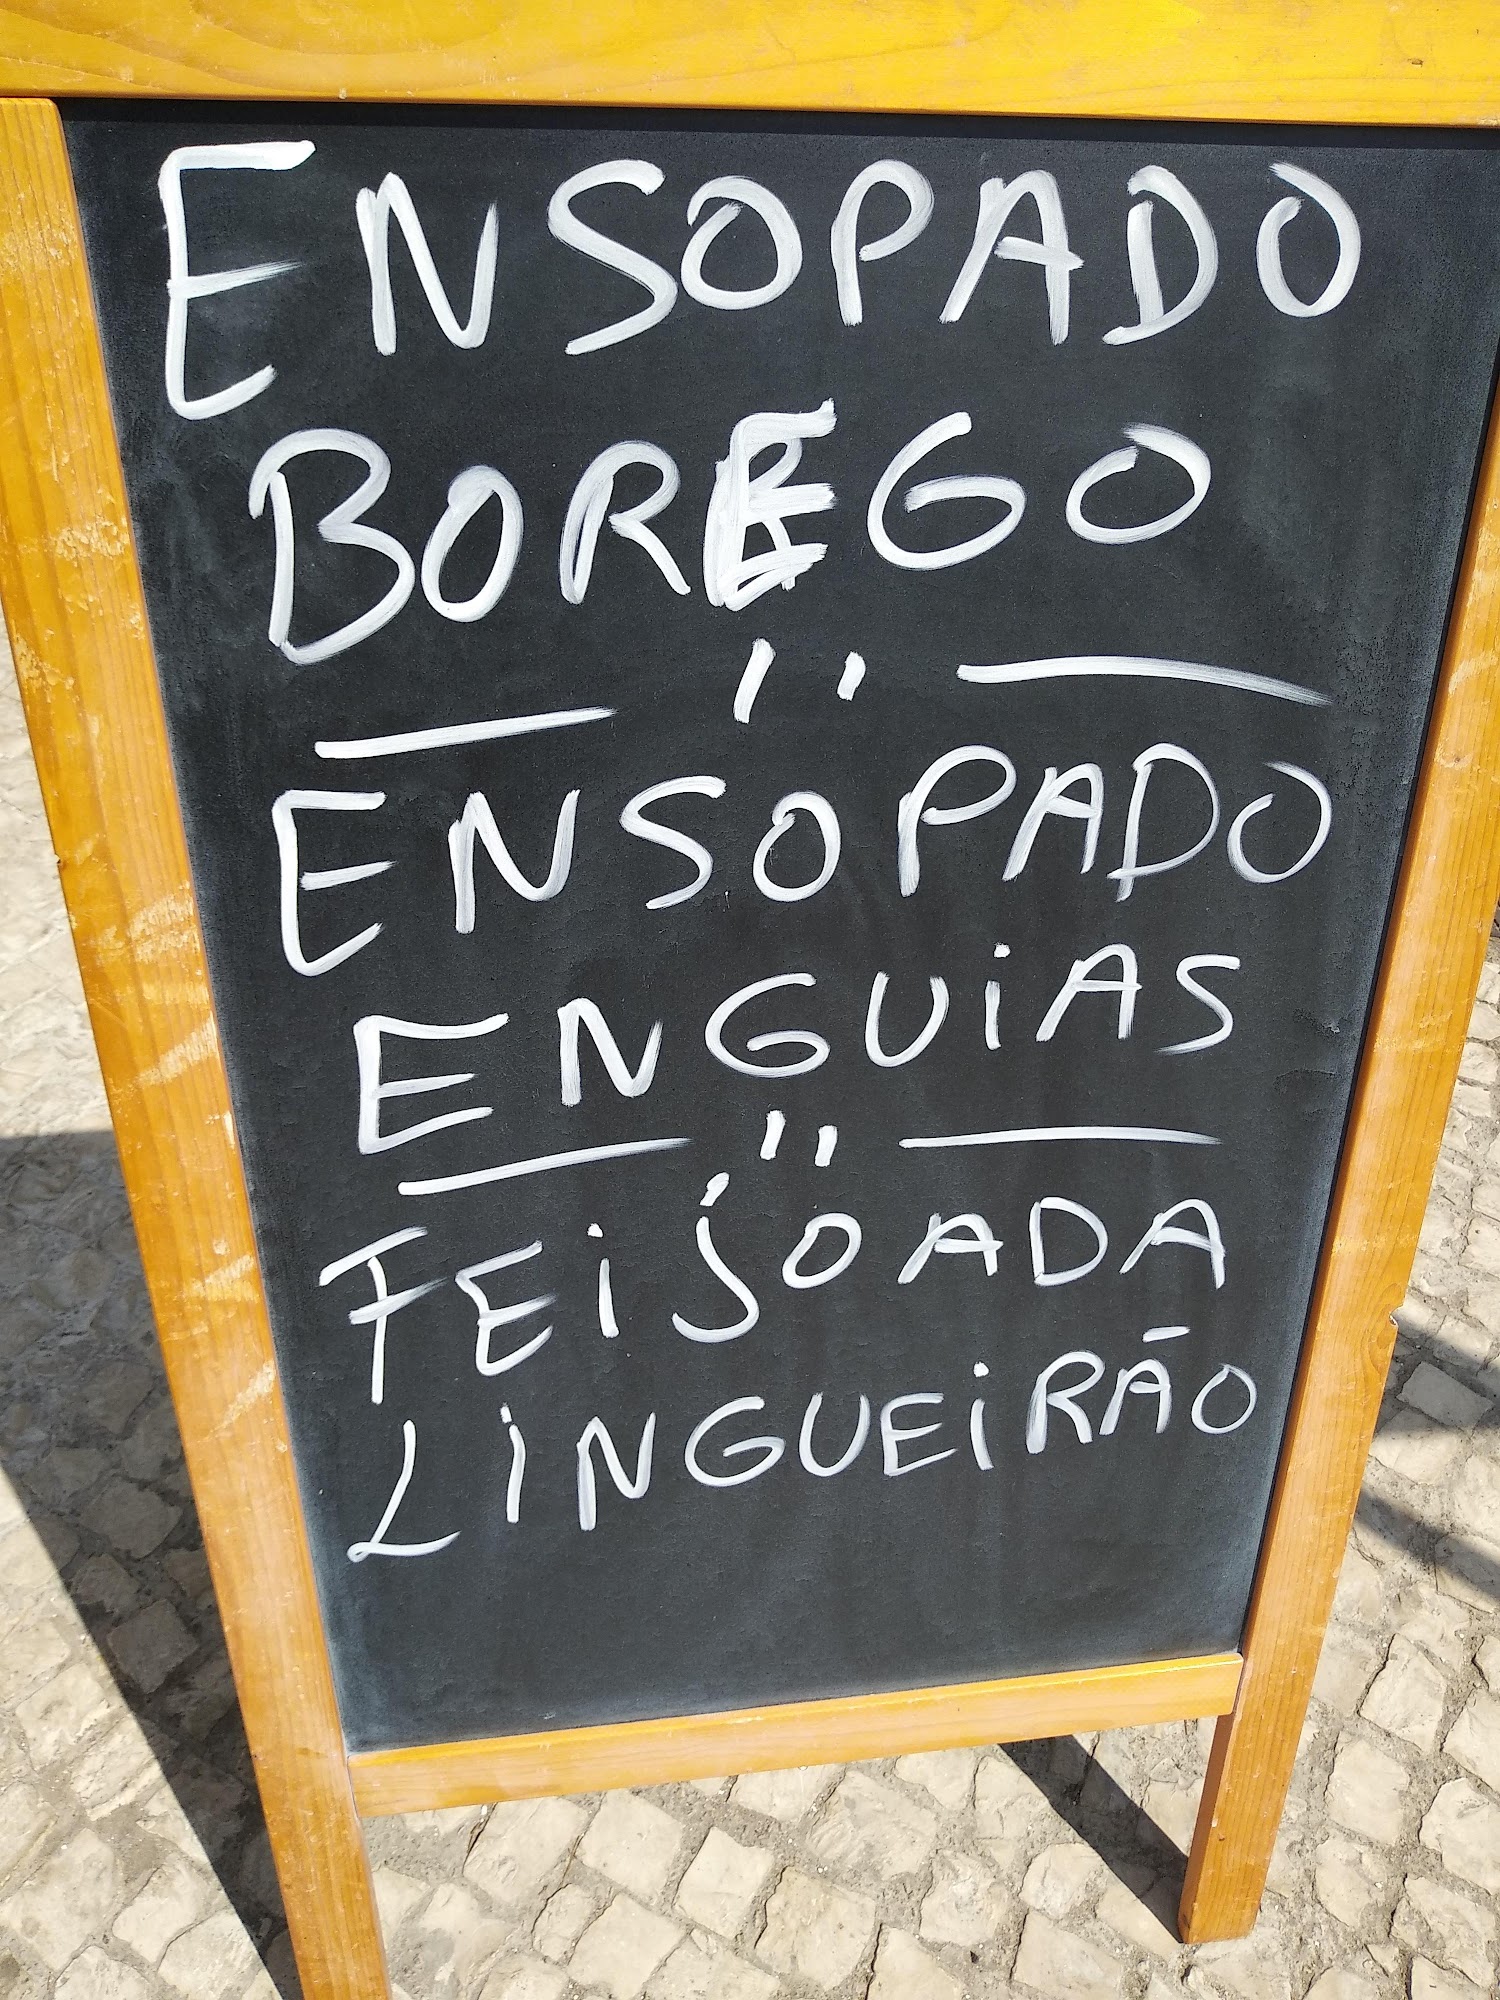 ENSOPADO
BOREGO
— " —
ENSOPADO
ENGUiAS
— " —
FEiJOADA
LiNGUEiRÃO